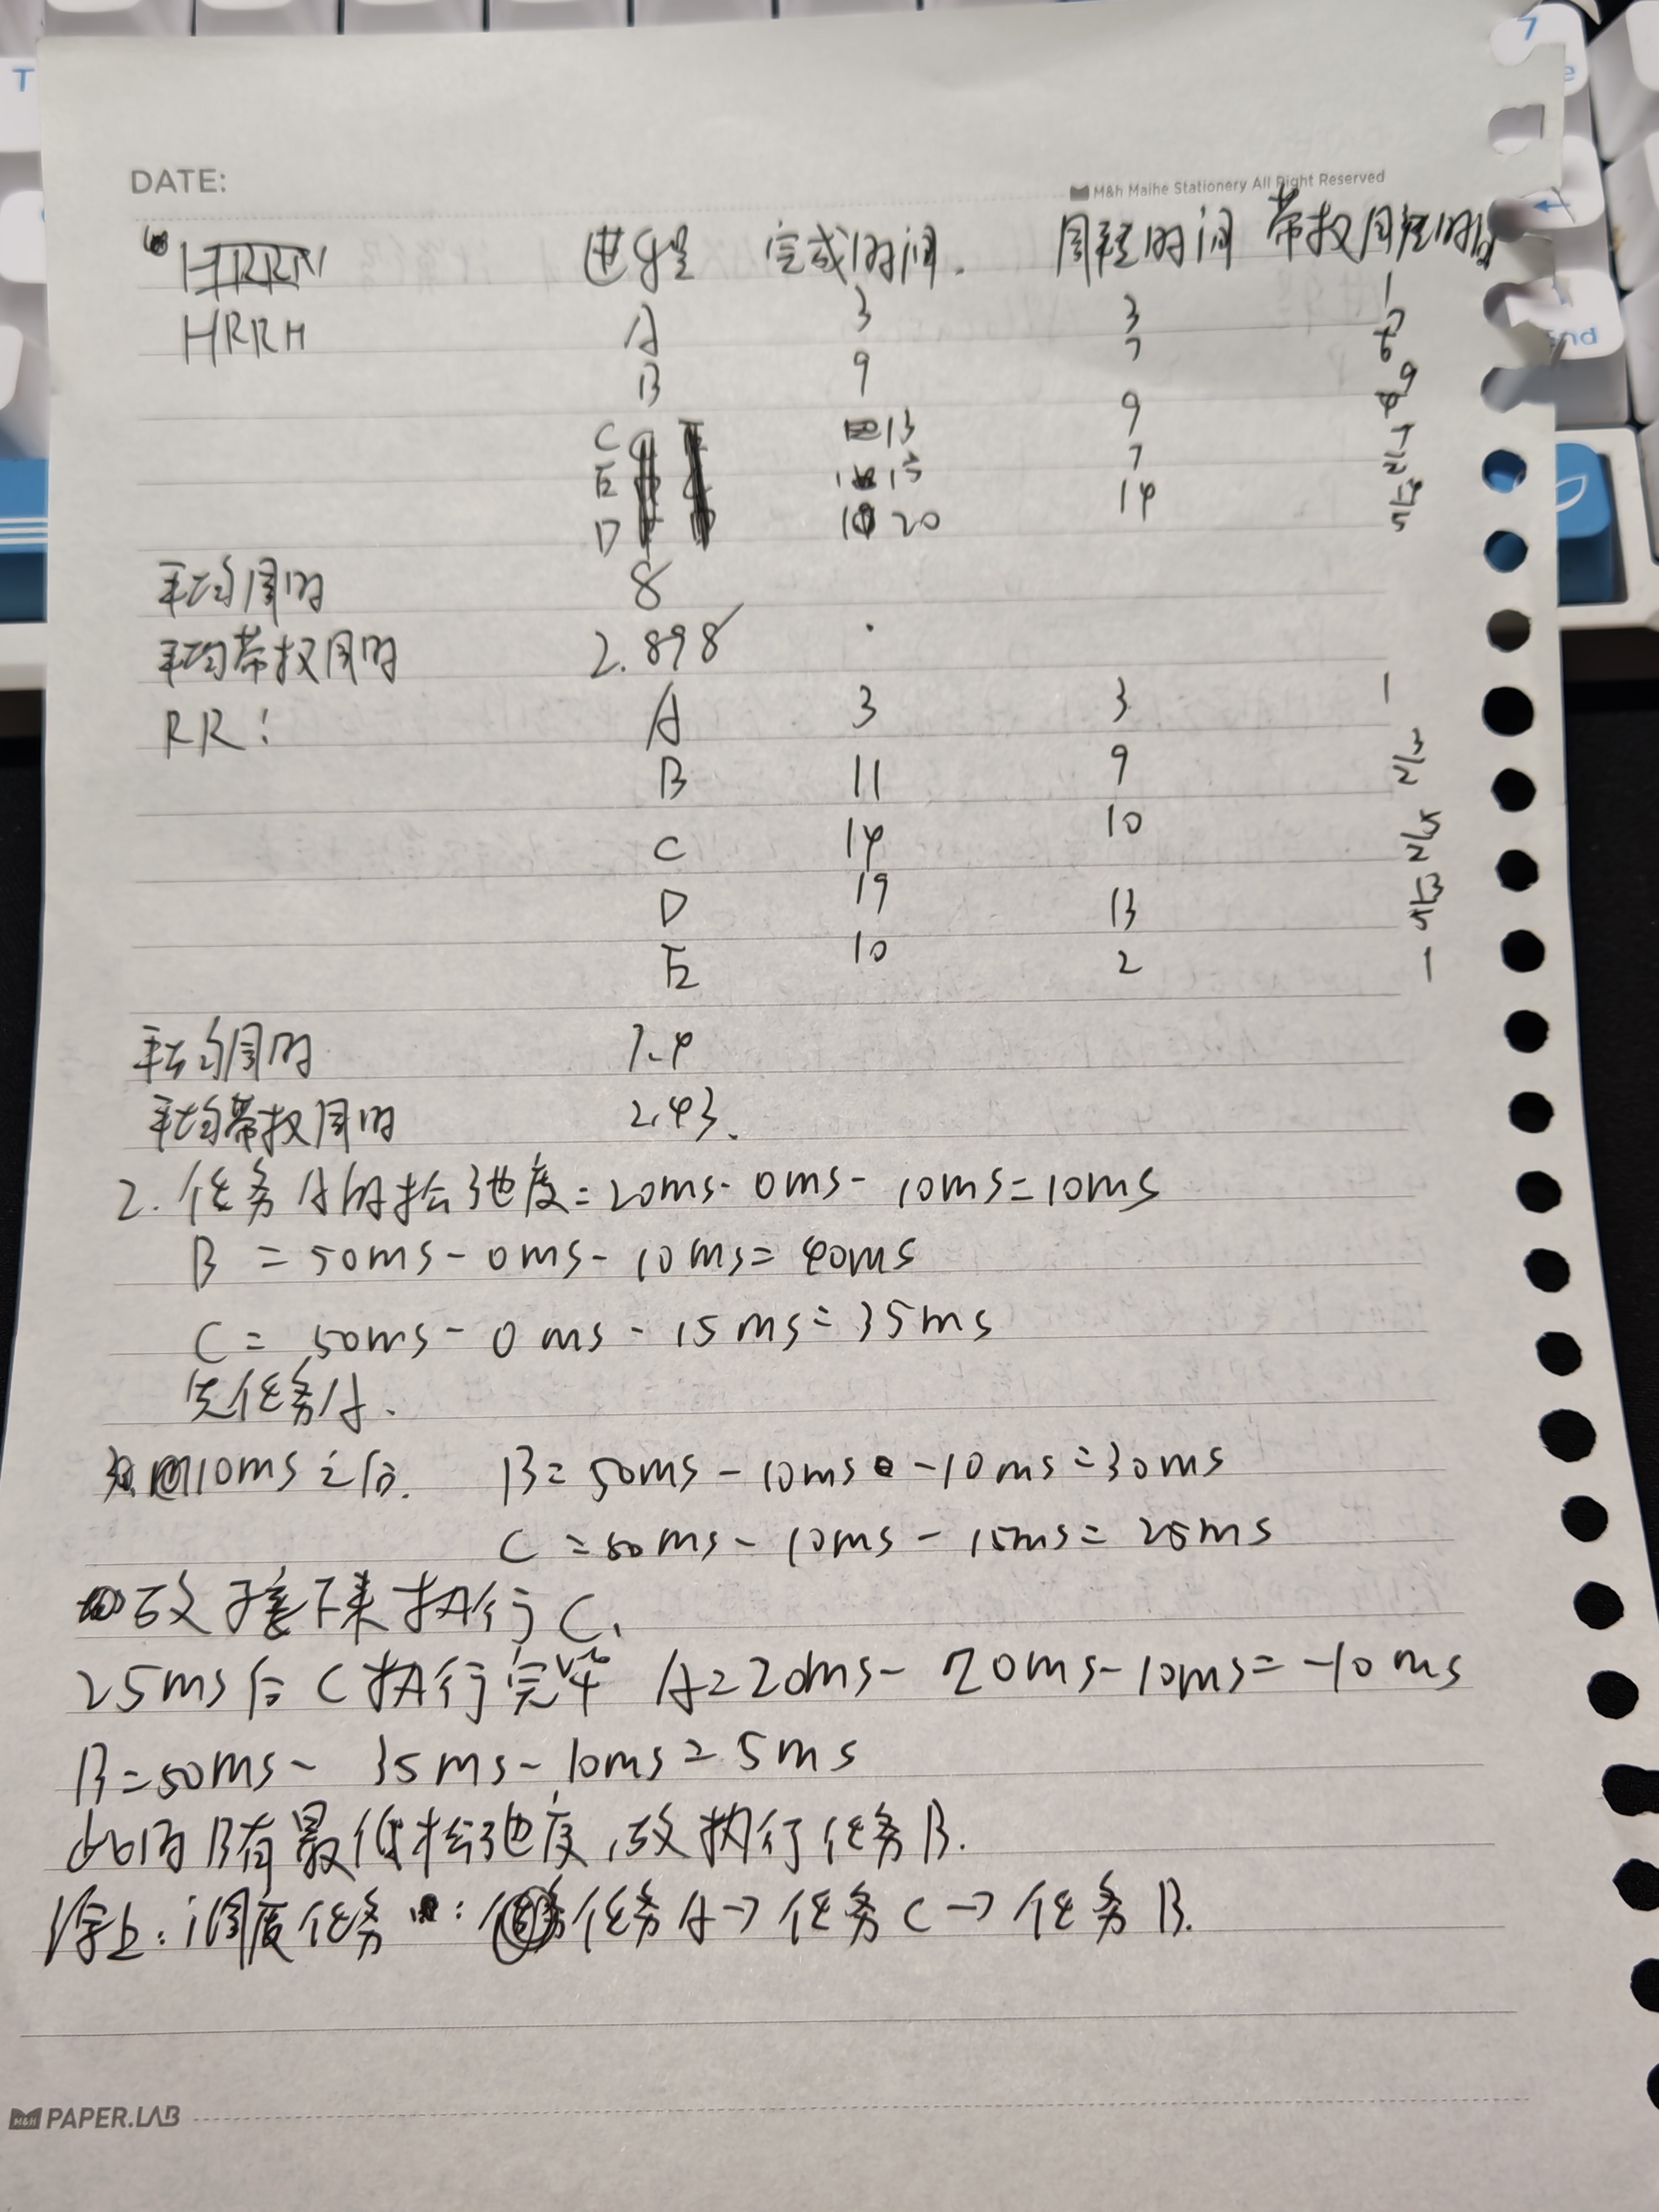 DATE:
M&h Maihe Stationery All Right Reserved
进程 完成时间. 周转时间 带权周转时间
HRRH A 3 3 1
B 9 7 7/6
C 13 9 9/4
E 15 7 7/2
D 20 14 14/5
平均周时 8
平均带权周时 2.898
RR: A 3 3 1
B 11 9 3/2
C 14 10 5/2
D 19 13 13/5
E 10 2 1
平均周时 7.4
平均带权周时 2.43.
2. 任务A的松弛度=20ms-0ms-10ms=10ms
B =50ms-0ms-10ms=40ms
C= 50ms-0ms-15ms=35ms
先任务A.
10ms之后. B=50ms-10ms-10ms=30ms
C=50ms-10ms-15ms=25ms
故接下来执行C.
25ms后C执行完毕 A=20ms-20ms-10ms=-10ms
B=50ms- 35ms-10ms=5ms
此时B有最低松弛度,故执行任务B.
综上:调度任务 : 任务A→任务C→任务B.
M&H PAPER.LAB